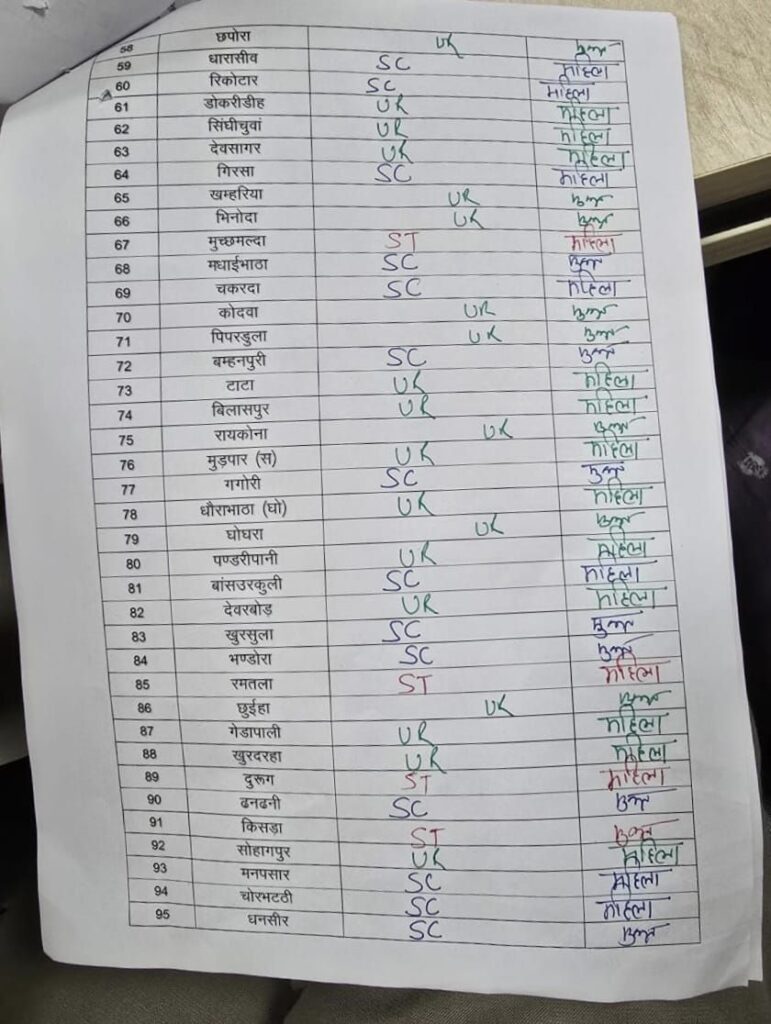 58 छपोरा UR मुक्त
59 धारासीव SC महिला
60 रिकोटार SC महिला
61 डोकरीडीह UR महिला
62 सिंघीचुवां UR महिला
63 देवसागर UR महिला
64 गिरसा SC महिला
65 खम्हरिया UR मुक्त
66 भिनोदा UR मुक्त
67 मुच्छमल्दा ST महिला
68 मधाईभाठा SC मुक्त
69 चकरदा SC महिला
70 कोदवा UR मुक्त
71 पिपरडुला UR मुक्त
72 बम्हनपुरी SC मुक्त
73 टाटा UR महिला
74 बिलासपुर UR महिला
75 रायकोना UR मुक्त
76 मुड़पार (स) UR महिला
77 गगोरी SC मुक्त
78 धौराभाठा (घो) UR महिला
79 घोघरा UR मुक्त
80 पण्डरीपानी UR महिला
81 बांसउरकुली SC महिला
82 देवरबोड़ UR महिला
83 खुरसुला SC मुक्त
84 भण्डोरा SC मुक्त
85 रमतला ST महिला
86 छुईहा UR मुक्त
87 गेडापाली UR महिला
88 खुरदरहा UR महिला
89 दुरूग ST महिला
90 ढनढनी SC मुक्त
91 किसड़ा ST मुक्त
92 सोहागपुर UR महिला
93 मनपसार SC महिला
94 चोरभटठी SC महिला
95 धनसीर SC मुक्त